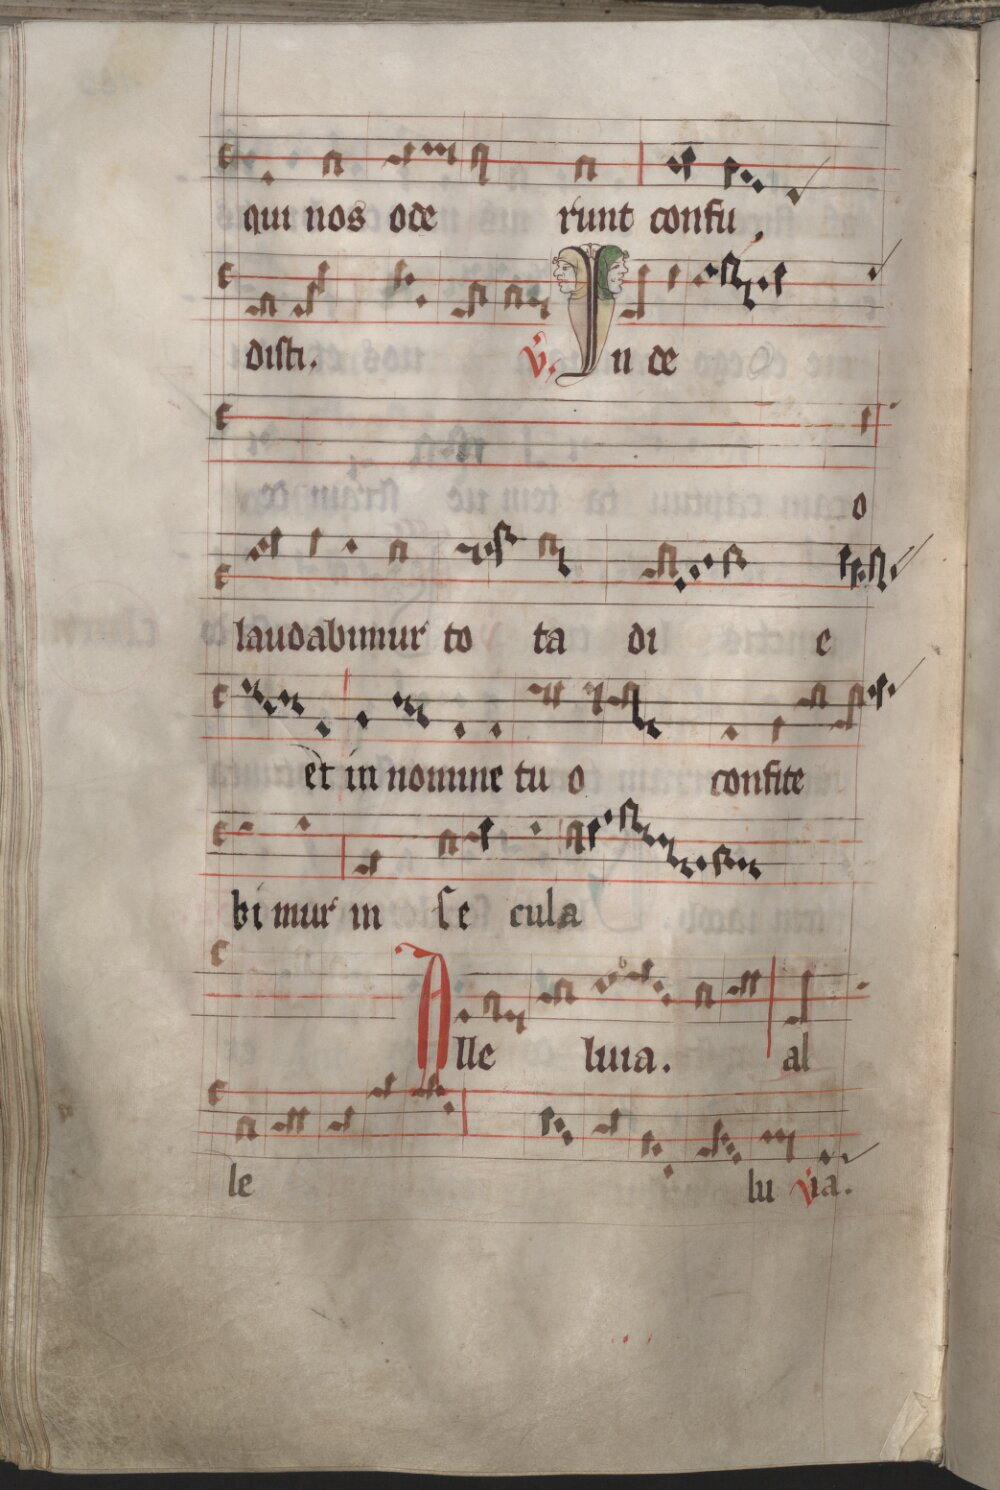 qui nos ode runt confu
disti. V. In de
o
laudabimur to ta di e
et in nomine tu o confite
bi mur in se cula
Alle luia. al
le lu ia.